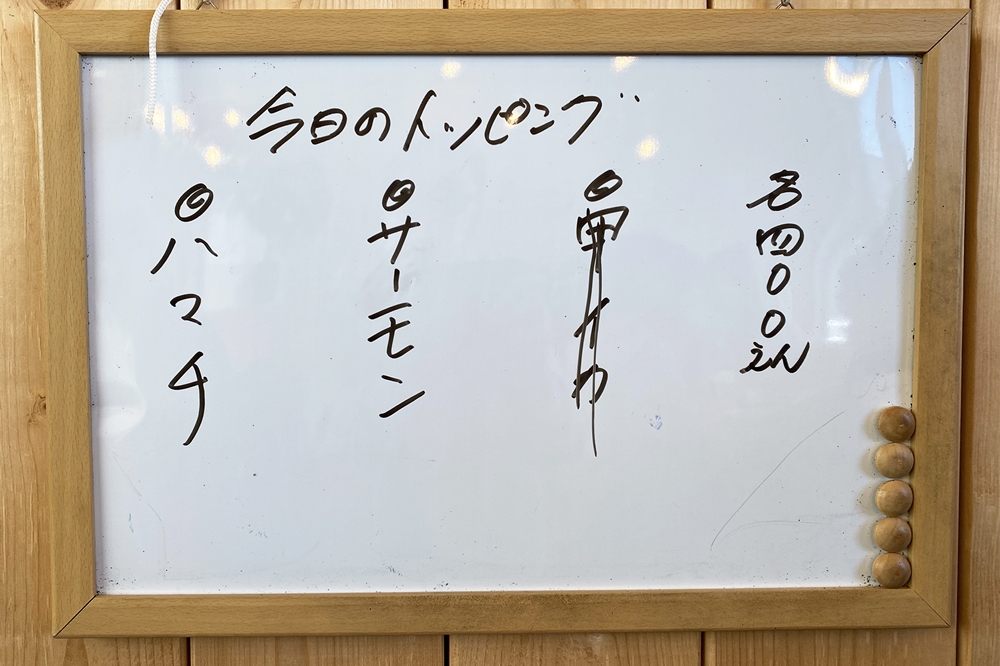 今日のトッピング
各四００えん
◎甲イカ
◎サーモン
◎ハマチ